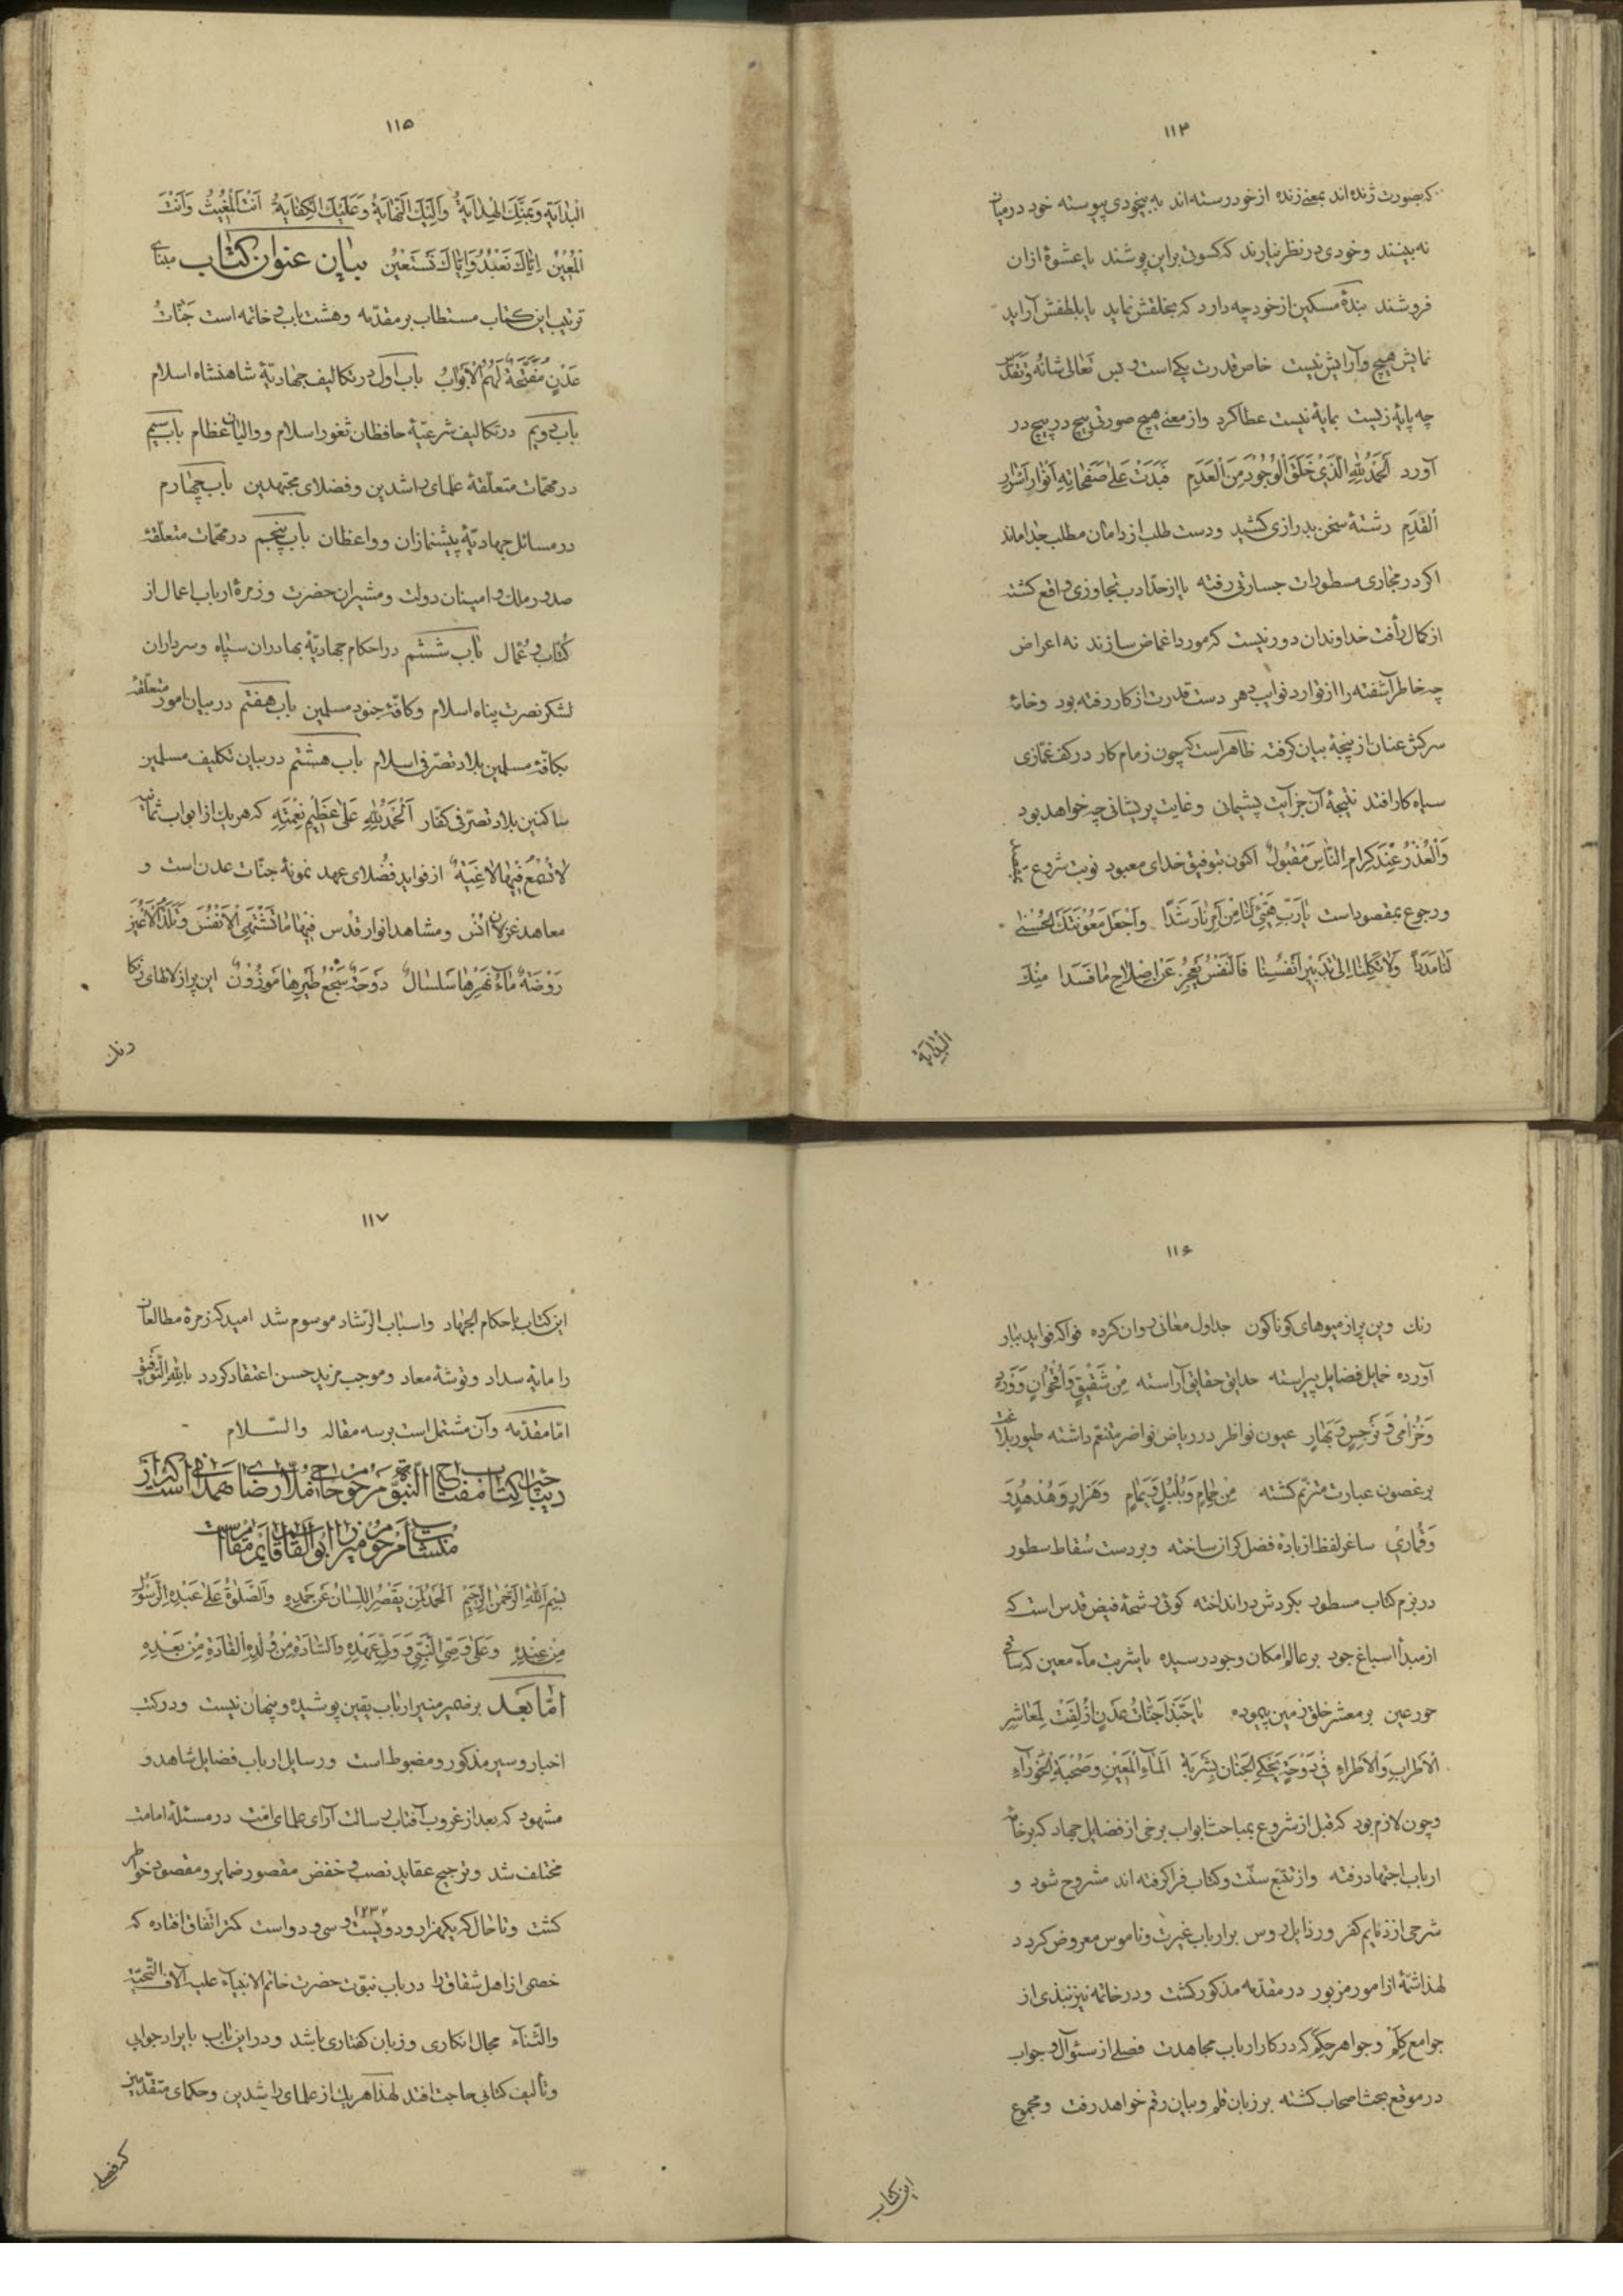 ۱۱۴
که بصورت زنده اند بمعنی زنده از خود رسته اند به بیخودی پیوسته خود در میان
نه بینند و خودی در نظر نیارند که کسوتی بر این پوشند یا عشوهٔ از ان
فروشند بندهٔ مسکین از خود چه دارد که بخلقش نماید یا بلطفش آراید
نمایش هیچ و آرایش نیست خاص قدرت یکی است و بس تعالی شانه و تقدس
چه پایهٔ زیست بمایهٔ نیست عطا کرد و از معنی هیچ صورتی پیچ در پیچ در
آورد اَلحَمدُ لِلّهِ الَّذی خَلَقَ الوُجُودَ مِنَ العَدَمِ فَبَدَت عَلی صَفَحاتِهِ اَنوارُ اَسرارِ
القِدَمِ رشتهٔ سخن بدرازی کشید و دست طلب از دامان مطلب جدا ماند
اکر در مجاری مسطورات جسارتی رفته یا از حدّ ادب تجاوزی واقع کشته
از کمال رأفت خداوندان دور نیست که مورد اغماض سازند نه اعراض
چه خاطر آشفته را از توارد نوایب دهر دست قدرت از کار رفته بود و خامهٔ
سرکش عنان از پنجهٔ بیان کرفته ظاهر است که چون زمام کار در کف غمّازی
سیاه کار افتد نتیجهٔ آن جز آیت پشیمانی و غایت پریشانی چه خواهد بود
وَالعُذرُ عِندَ کِرامِ النّاسِ مَقبُولٌ اکنون بتوفیق خدای معبود نوبت شروع بمقصد
و رجوع بمقصود است یا رَبِّ هَیِّئ لَنا مِن اَمرِنا رَشَدًا وَاجعَل مَعُونَتَکَ الحُسنی
لَنا مَدَدًا وَلا تَکِلنا اِلی تَدبیرِ اَنفُسِنا فَالنَّفسُ تَعجِزُ عَن اِصلاحِ ما فَسَدا مِنکَ
البِدایَة
۱۱۵
البِدایَةُ وَ مِنکَ الهِدایَةُ وَاِلَیکَ النِّهایَةُ وَعَلَیکَ الکِفایَةُ اَنتَ المُغیثُ وَاَنتَ
المُعینُ اِیّاکَ نَعبُدُ وَاِیّاکَ نَستَعینُ بیان عنوان کتاب مبنای
ترتیب این کتاب مستطاب بر مقدّمه و هشت باب و خاتمه است جَنّاتُ
عَدنٍ مُفَتَّحَةً لَهُمُ الاَبوابُ باب اول در تکالیف جهادیّهٔ شاهنشاه اسلام
باب دویم در تکالیف شرعیّهٔ حافظان ثغور اسلام و والیان عظام باب سیم
در مهمّات متعلّقهٔ علمای راشدین و فضلای مجتهدین باب چهارم
در مسائل جهادیّهٔ پیشنمازان و واعظان باب پنجم در مهمّات متعلّقهٔ
صدور ملک و امینان دولت و مشیران حضرت و زمرهٔ ارباب اعمال از
کُتّاب و عُمّال باب ششم در احکام جهادیّهٔ بهادران سپاه و سرداران
لشکر نصرت پناه اسلام و کافّهٔ جنود مسلمین باب هفتم در بیان امور متعلّقه
بکافّهٔ مسلمین بلاد تصرّفی اسلام باب هشتم در بیان تکلیف مسلمین
ساکنین بلاد تصرّفی کفّار اَلحَمدُ لِلّهِ عَلی عَظیمِ نِعمَتِهِ که هر یک از ابواب ثمانیه
لا تَسمَعُ فیها لاغِیَةً از فواید فضلای عهد نمونهٔ جنّات عدن است و
معاهد غزلان انس و مشاهد انوار قدس فیها ما تَشتَهِی الاَنفُسُ وَتَلَذُّ الاَعیُنُ
رَوضَةٌ ماءُ نَهرِها سَلسالٌ دَوحَةٌ سَجعُ طَیرِها مَوزُونٌ این پر از لالهای رنکا
رنک
۱۱۶
رنک وین پر از میوهای کوناکون جداول معانی روان کرده فواکه فواید ببار
آورده خمایل فضایل پیراسته حدایق حقایق آراسته مِن شَقیقٍ وَاُقحُوانٍ وَوَردٍ
وَخُزامی وَنَرجِسٍ وَبَهارٍ عیون نواظر در ریاض نواضر متنعّم داشته طیور بلاغت
بر غصون عبارت مترنّم کشته مِن حَمامٍ وَبُلبُلٍ وَیَمامٍ وَهَزارٍ وَهُدهُدٍ وَ
وَقُماری ساغر لفظ از بادهٔ فضل کران ساخته و بر دست سُقاط سطور
در بزم کتاب مسطور بکردش در انداخته کوئی رشحهٔ فیض قدس است که
از مبدأ اسباغ جود بر عالم امکان وجود رسیده یا شربت ماء معین که ساقی
حور عین بر معشر خلق زمین پیموده یا حَبَّذا جَنّاتُ عَدنٍ اُزلِفَت لِمَعاشِرِ
الاَطرابِ وَالاَطراءِ فی دَوحَةٍ تَحکِی الجَنانَ بِشَربَةِ الماءِ المَعینِ وَصُحبَةِ الحَوراءِ
و چون لازم بود که قبل از شروع بمباحث ابواب برخی از فضایل جهاد که بر خامهٔ
ارباب اجتهاد رفته و از تتبّع سنّت و کتاب فرا کرفته اند مشروح شود و
شرحی از ذمایم کفر و رذایل روس بر ارباب غیرت و ناموس معروض کردد
لهذا شمّهٔ از امور مزبور در مقدّمه مذکور کشت و در خاتمه نیز نبذی از
جوامع کَلِم و جواهر حِکَم که در کار ارباب مجاهدت فصلی از سئوال و جواب
در موقع بحث اصحاب کشته بر زبان قلم و بیان رقم خواهد رفت و مجموع
این کتاب
۱۱۷
این کتاب باحکام الجهاد و اسباب الرّشاد موسوم شد امید که زمرهٔ مطالعان
را مایهٔ سداد و توشهٔ معاد و موجب مزید حسن اعتقاد کردد بالله التّوفیق
امّا مقدّمه و آن مشتمل است بر سه مقاله والسّلام
دیباچهٔ کتاب مفتاح النّبوّه مرحوم حاجی ملّا رضای همدانی است که از
منشآت مرحوم میرزا ابوالقاسم قایم مقام است
بِسمِ اللهِ الرَّحمنِ الرَّحیمِ اَلحَمدُ لِمَن یَقصُرُ اللِّسانُ عَن حَمدِهِ وَالصَّلوةُ عَلی عَبدِهِ الرَّسُولِ
مِن عِندِهِ وَعَلی وَصِیِّ النَّبِیِّ وَ وَلِیِّ عَهدِهِ وَالسّادَةِ مِن وُلدِهِ القادَةِ مِن بَعدِهِ
امّا بَعد بر ضمیر منیر ارباب یقین پوشیده و پنهان نیست و در کتب
اخبار و سیر مذکور و مضبوط است و رسایل ارباب فضایل شاهد و
مشهود که بعد از غروب آفتاب رسالت آرای علمای امّت در مسئلهٔ امامت
مختلف شد و ترجیح عقاید نصب و خفض مقصور ضمایر و مقصود خواطر
کشت و تا حال که یکهزار و دویست و سی و دو است ۱۲۳۲ کمتر اتّفاق افتاده که
خصمی از اهل شقاق را در باب نبوّت حضرت خاتم الانبیاء علیه آلاف التّحیّة
والثّناء مجال انکاری و زبان کفتاری باشد و در این باب بایراد جوابی
و تألیف کتابی حاجت افتد لهذا هر یک از علمای راشدین و حکمای متقدّمین
که فصلی